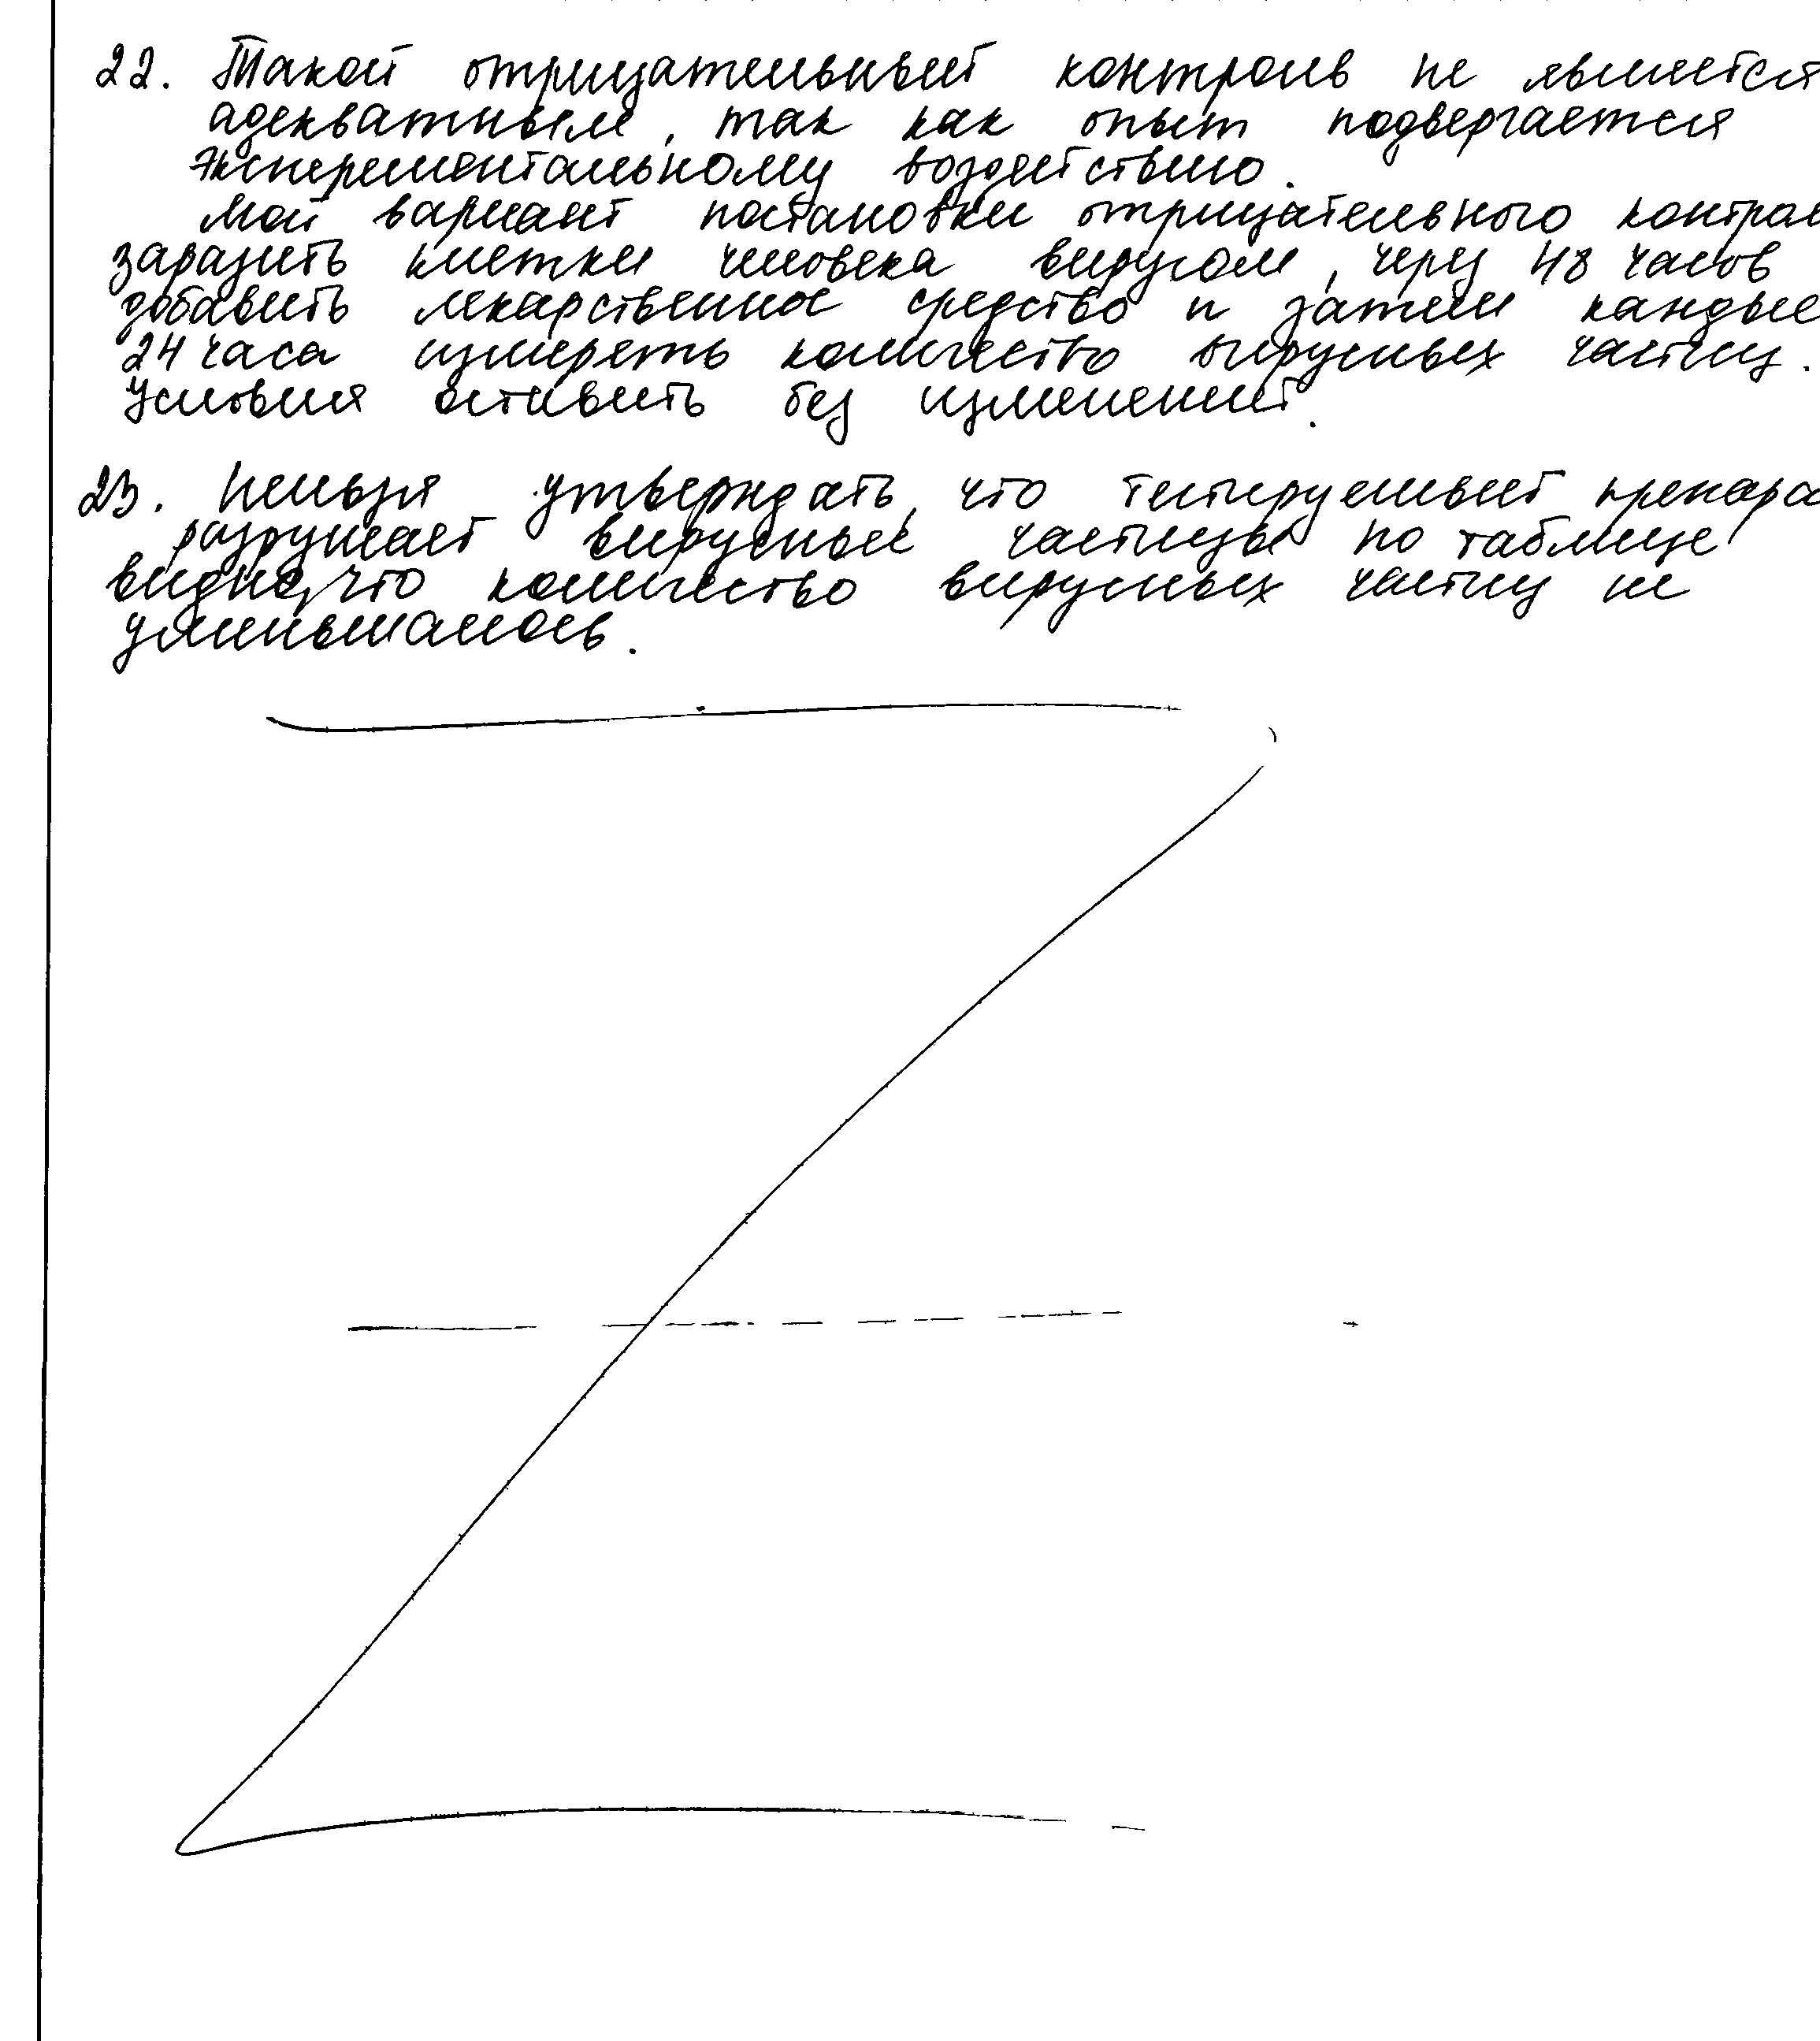 22. Такой отрицательный контроль не является
адекватным, так как опыт подвергается
эксперементальному воздействию.
Мой вариант постановки отрицательного контрол
заразить клетки человека вирусом, через 48 часов
добавить лекарственное средство и затем каждые
24 часа измерять количество вирусных частиц.
Условия оставить без изменений.
23. Нельзя утверждать, что тестируемый препара
разрушает вирусные частицы по таблице
видно, что количество вирусных частиц не
уменьшалось.